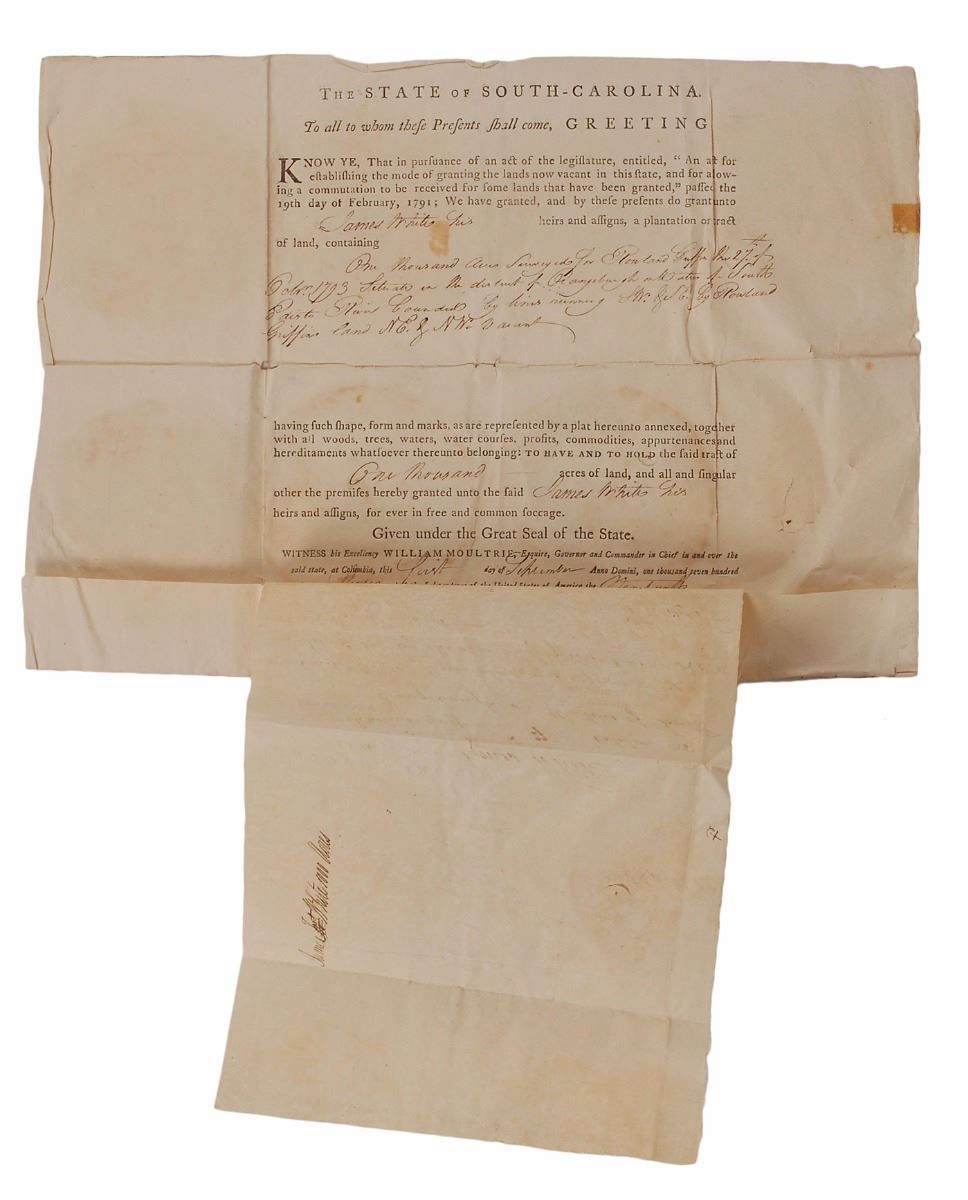 THE STATE OF SOUTH-CAROLINA.
To all to whom theſe Preſents ſhall come, GREETING
KNOW YE, That in purſuance of an act of the legiſlature, entitled, “ An act for
eſtabliſhing the mode of granting the lands now vacant in this ſtate, and for allow-
ing a commutation to be received for ſome lands that have been granted,” paſſed the
19th day of February, 1791; We have granted, and by theſe preſents do grant unto
James White his heirs and aſſigns, a plantation or tract
of land, containing
One thousand acres Surveyed for Rowland Griffin the 27th of
Octor. 1793 Situate in the district of Orangeburgh on waters of South
Edisto River bounded by lines running SW. & SE. by Rowland
Griffins land NE. & NW. Vacant
having ſuch ſhape, form and marks, as are repreſented by a plat hereunto annexed, together
with all woods, trees, waters, water courſes, profits, commodities, appurtenances and
hereditaments whatſoever thereunto belonging: TO HAVE AND TO HOLD the ſaid tract of
One thousand acres of land, and all and ſingular
other the premiſes hereby granted unto the ſaid James White his
heirs and aſſigns, for ever in free and common ſoccage.
Given under the Great Seal of the State.
WITNESS his Excellency WILLIAM MOULTRIE, Eſquire, Governor and Commander in Chief in and over the
ſaid ſtate, at Columbia, this First day of September Anno Domini, one thouſand ſeven hundred
of the United States of America the Nineteenth